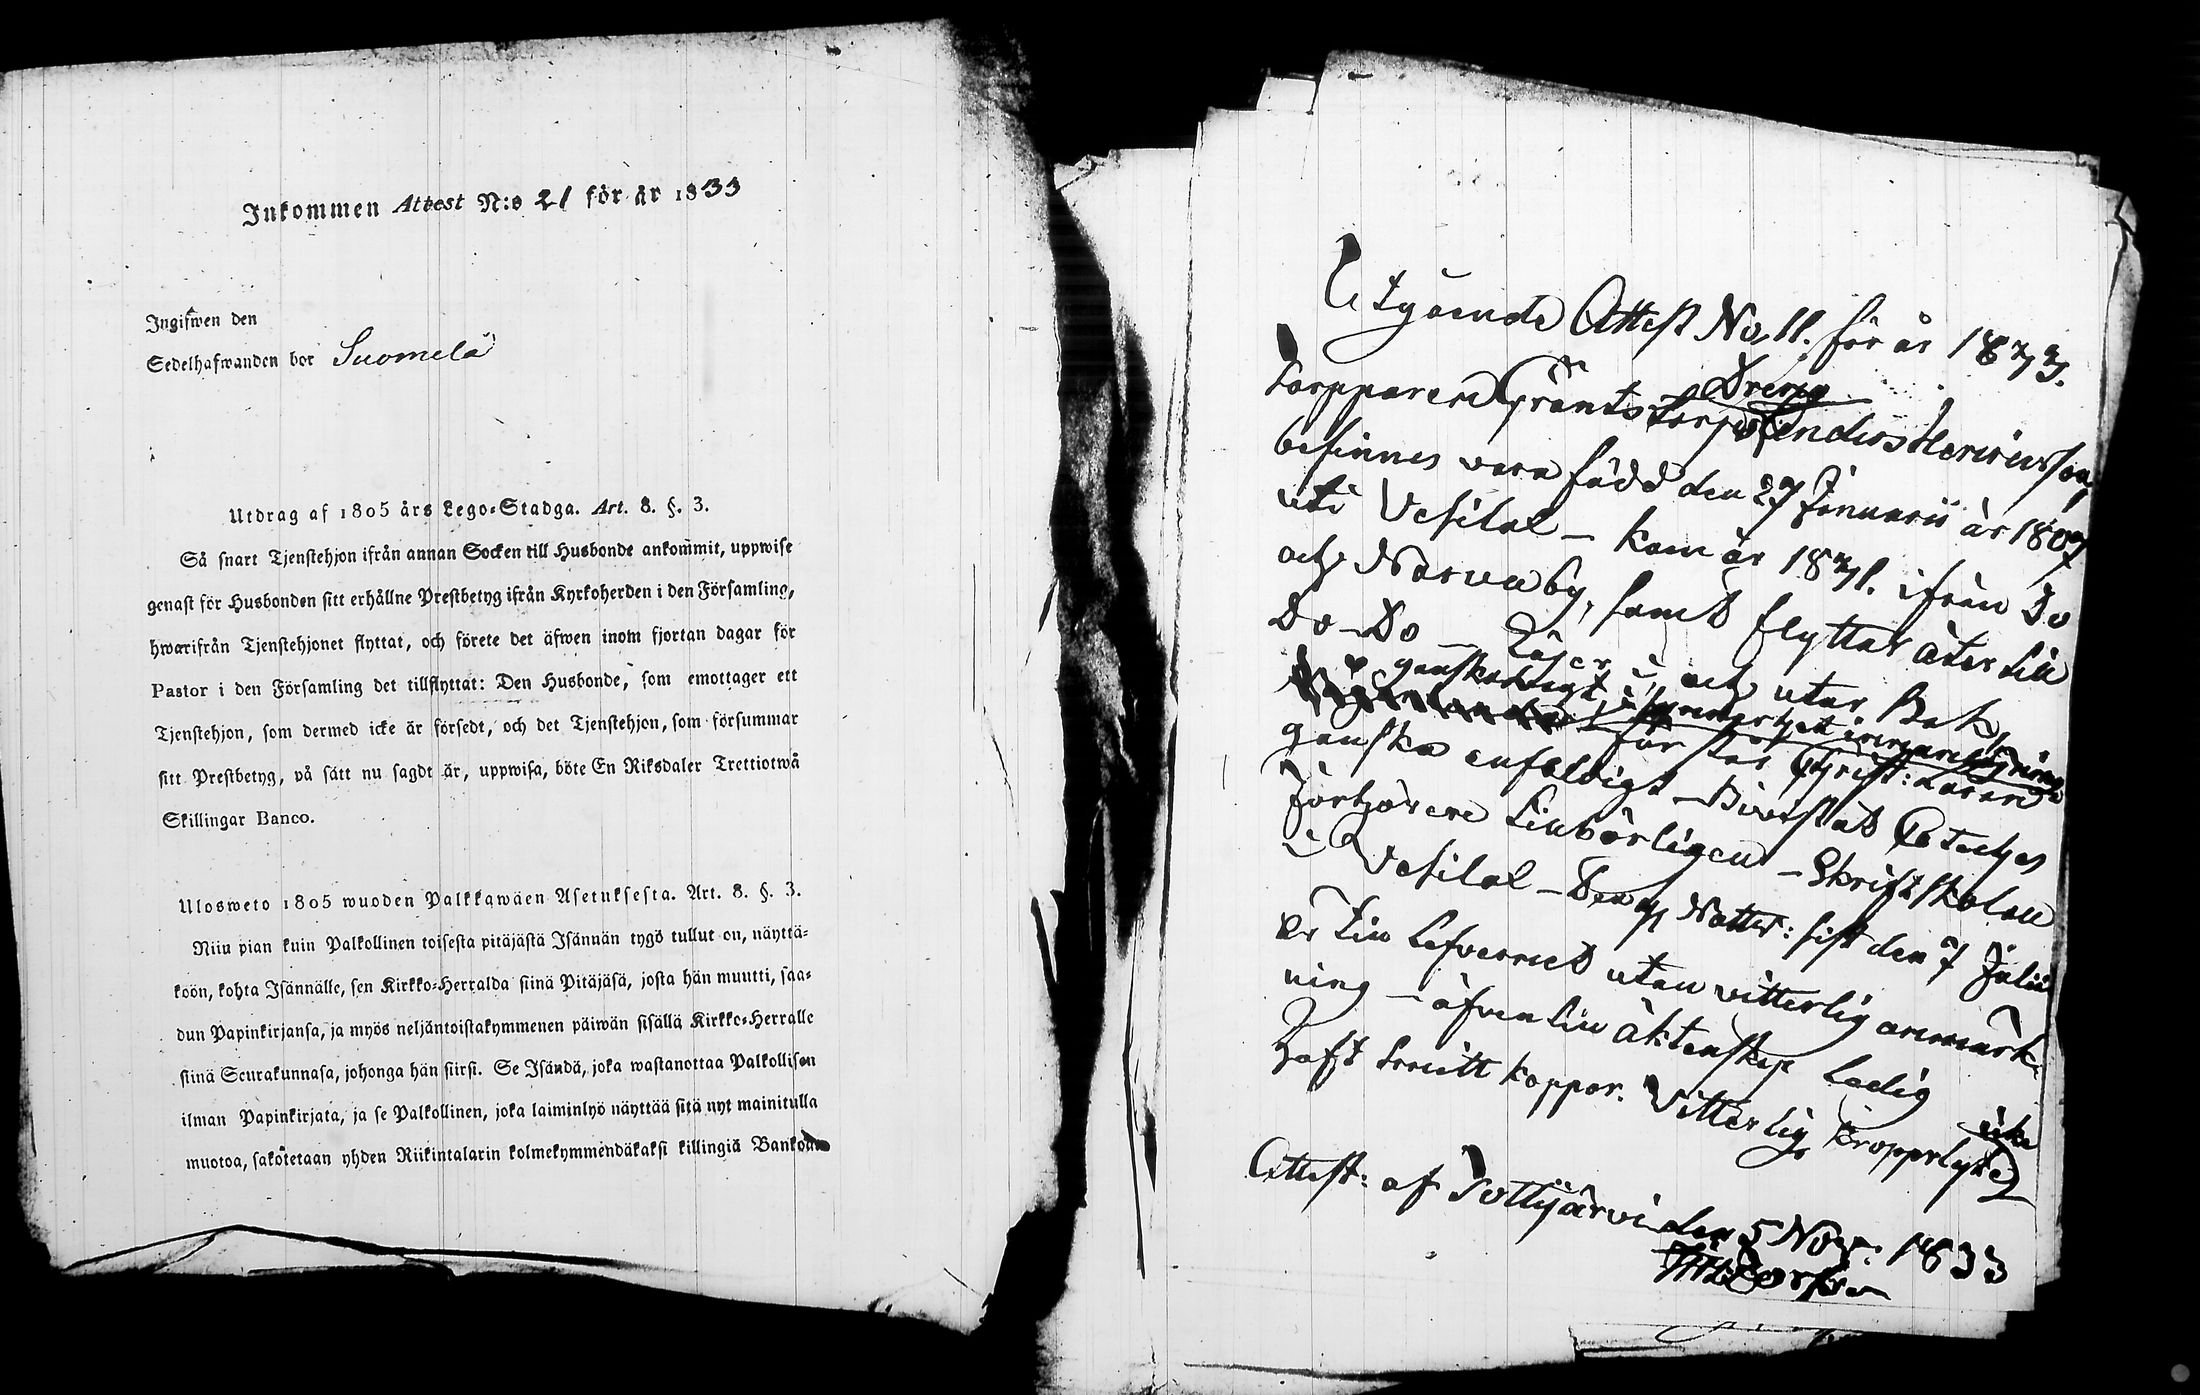 Inkommen Attest N:o 21 för år 1833
Ingifwen den
Sedelhafwanden bor Suomelä
Utdrag af 1805 års Lego-Stadga. Art. 8. §. 3.
Så snart Tjenstehjon ifrån annan Socken till Husbonde ankommit, uppwise
genast för Husbonden sitt erhållne Prestbetyg ifrån Kyrkoherden i den Församling,
hwarifrån Tjenstehjonet flyttat, och förete det äfwen inom fjortan dagar för
Pastor i den Församling det tillflyttat: Den Husbonde, som emottager ett
Tjenstehjon, som dermed icke är försedt, och det Tjenstehjon, som försummar
sitt Prestbetyg, på sätt nu sagdt är, uppwisa, böte En Riksdaler Trettiotwå
Skillingar Banco.
Ulosweto 1805 wuoden Palkkawäen Asetuksesta. Art. 8. §. 3.
Niiu pian kuin Palkollinen toisesta pitäjästä Isännän tygö tullut on, näyttä-
köön, kohta Isännälle, sen Kirkko-Herralda siinä Pitäjäsä, josta hän muutti, saa-
dun Papinkirjansa, ja myös neljäntoistakymmenen päiwän sisällä Kirkko-Herralle
siinä Seurakunnasa, johonga hän siirsi. Se Isändä, joka wastanottaa Palkollisen
ilman Papinkirjata, ja se Palkollinen, joka laiminlyö näyttää sitä nyt mainitulla
muotoa, sakötetaan yhden Riikintalarin kolmekymmendäkaksi killingiä Bankoa
Utgående Attest No 11. för år 1833.
Dreng
Torpparen Gränts torp Henricsson
befinnes vara född den 27 Januarii år 1807
uti Vesilax – kom år 1831. ifrån Do
och Narva by, samt flyttar åter till
Do Do – Läser i och utan Bok
ganska
förstår Christ: Läran
ganska enfaldigt – Bivistat Cateches
Förhören tillbörligen – Skriftskolan
i Vesilax – Beg: Nattv: sist den 7 Julii
är till Lefvernet utan vitterlig anmärk-
ning – äfven till äktenskap Ledig
Haft koppor. Vitterlig kroppslyte
icke
Attest: af Tottijärvi den 5 Nov: 1833